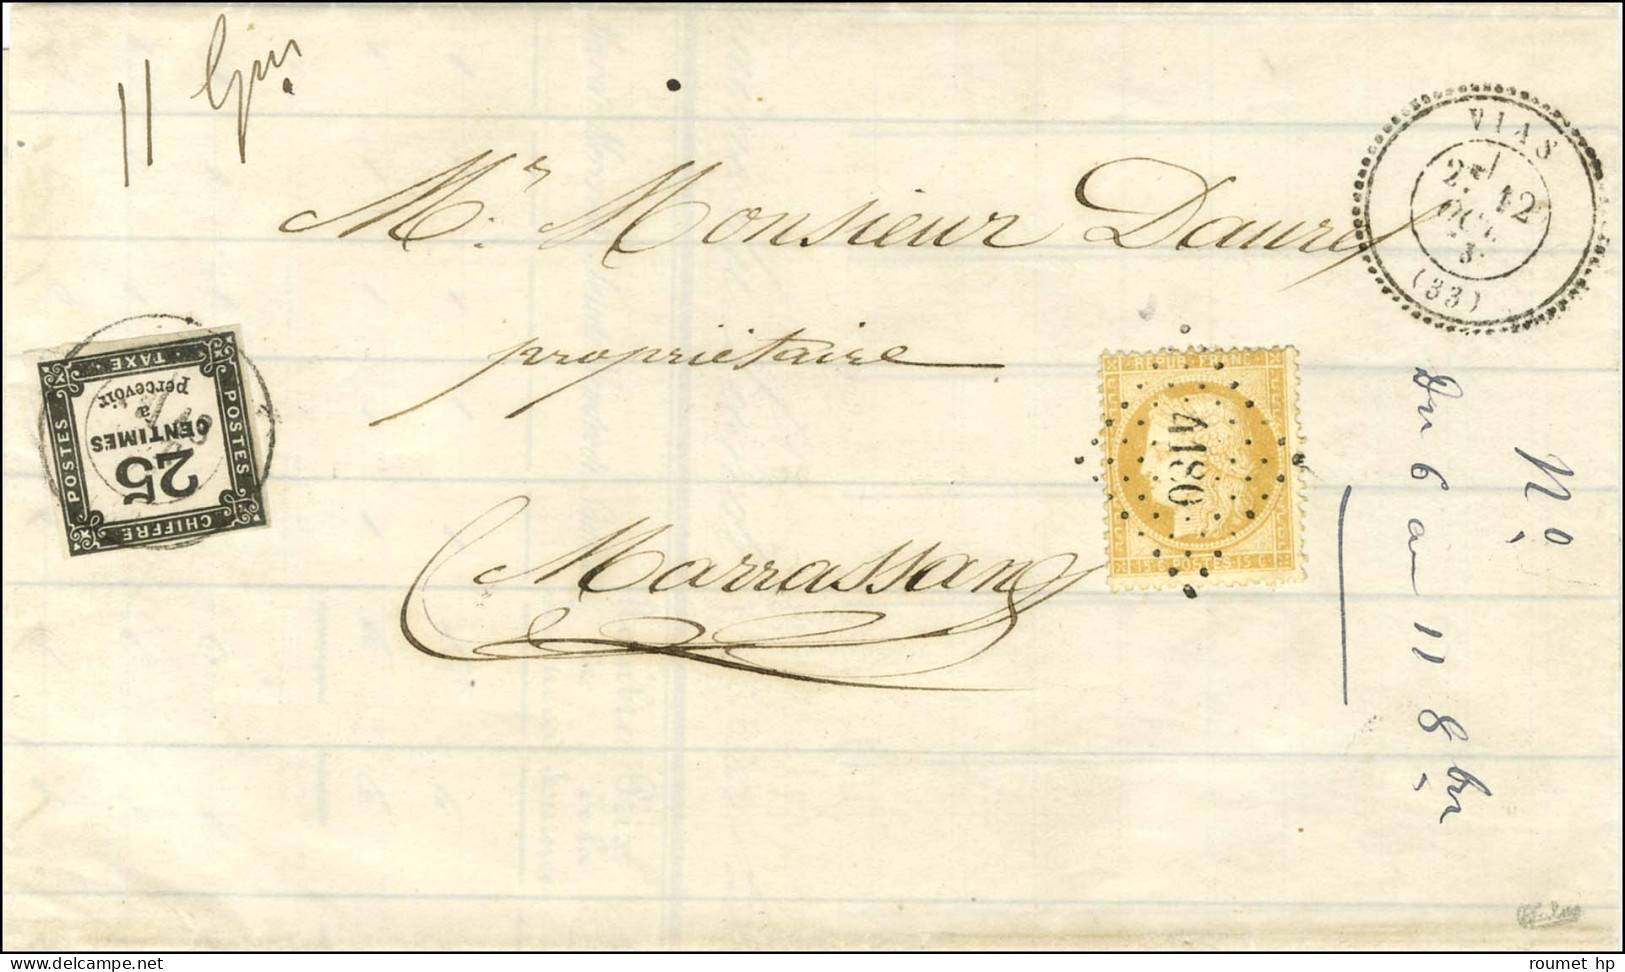 11 Gm
Mr. Monsieur Daure
propriétaire
Marrassan
VIAS
2E / 12
OCT.
3.
(33)
CHIFFRE
TAXE
POSTES
POSTES
25
CENTIMES
à
percevoir
REPUB. FRANC.
15 C. POSTES 15 C.
4180
No
Du 6 au 11 8bre
roumet hp